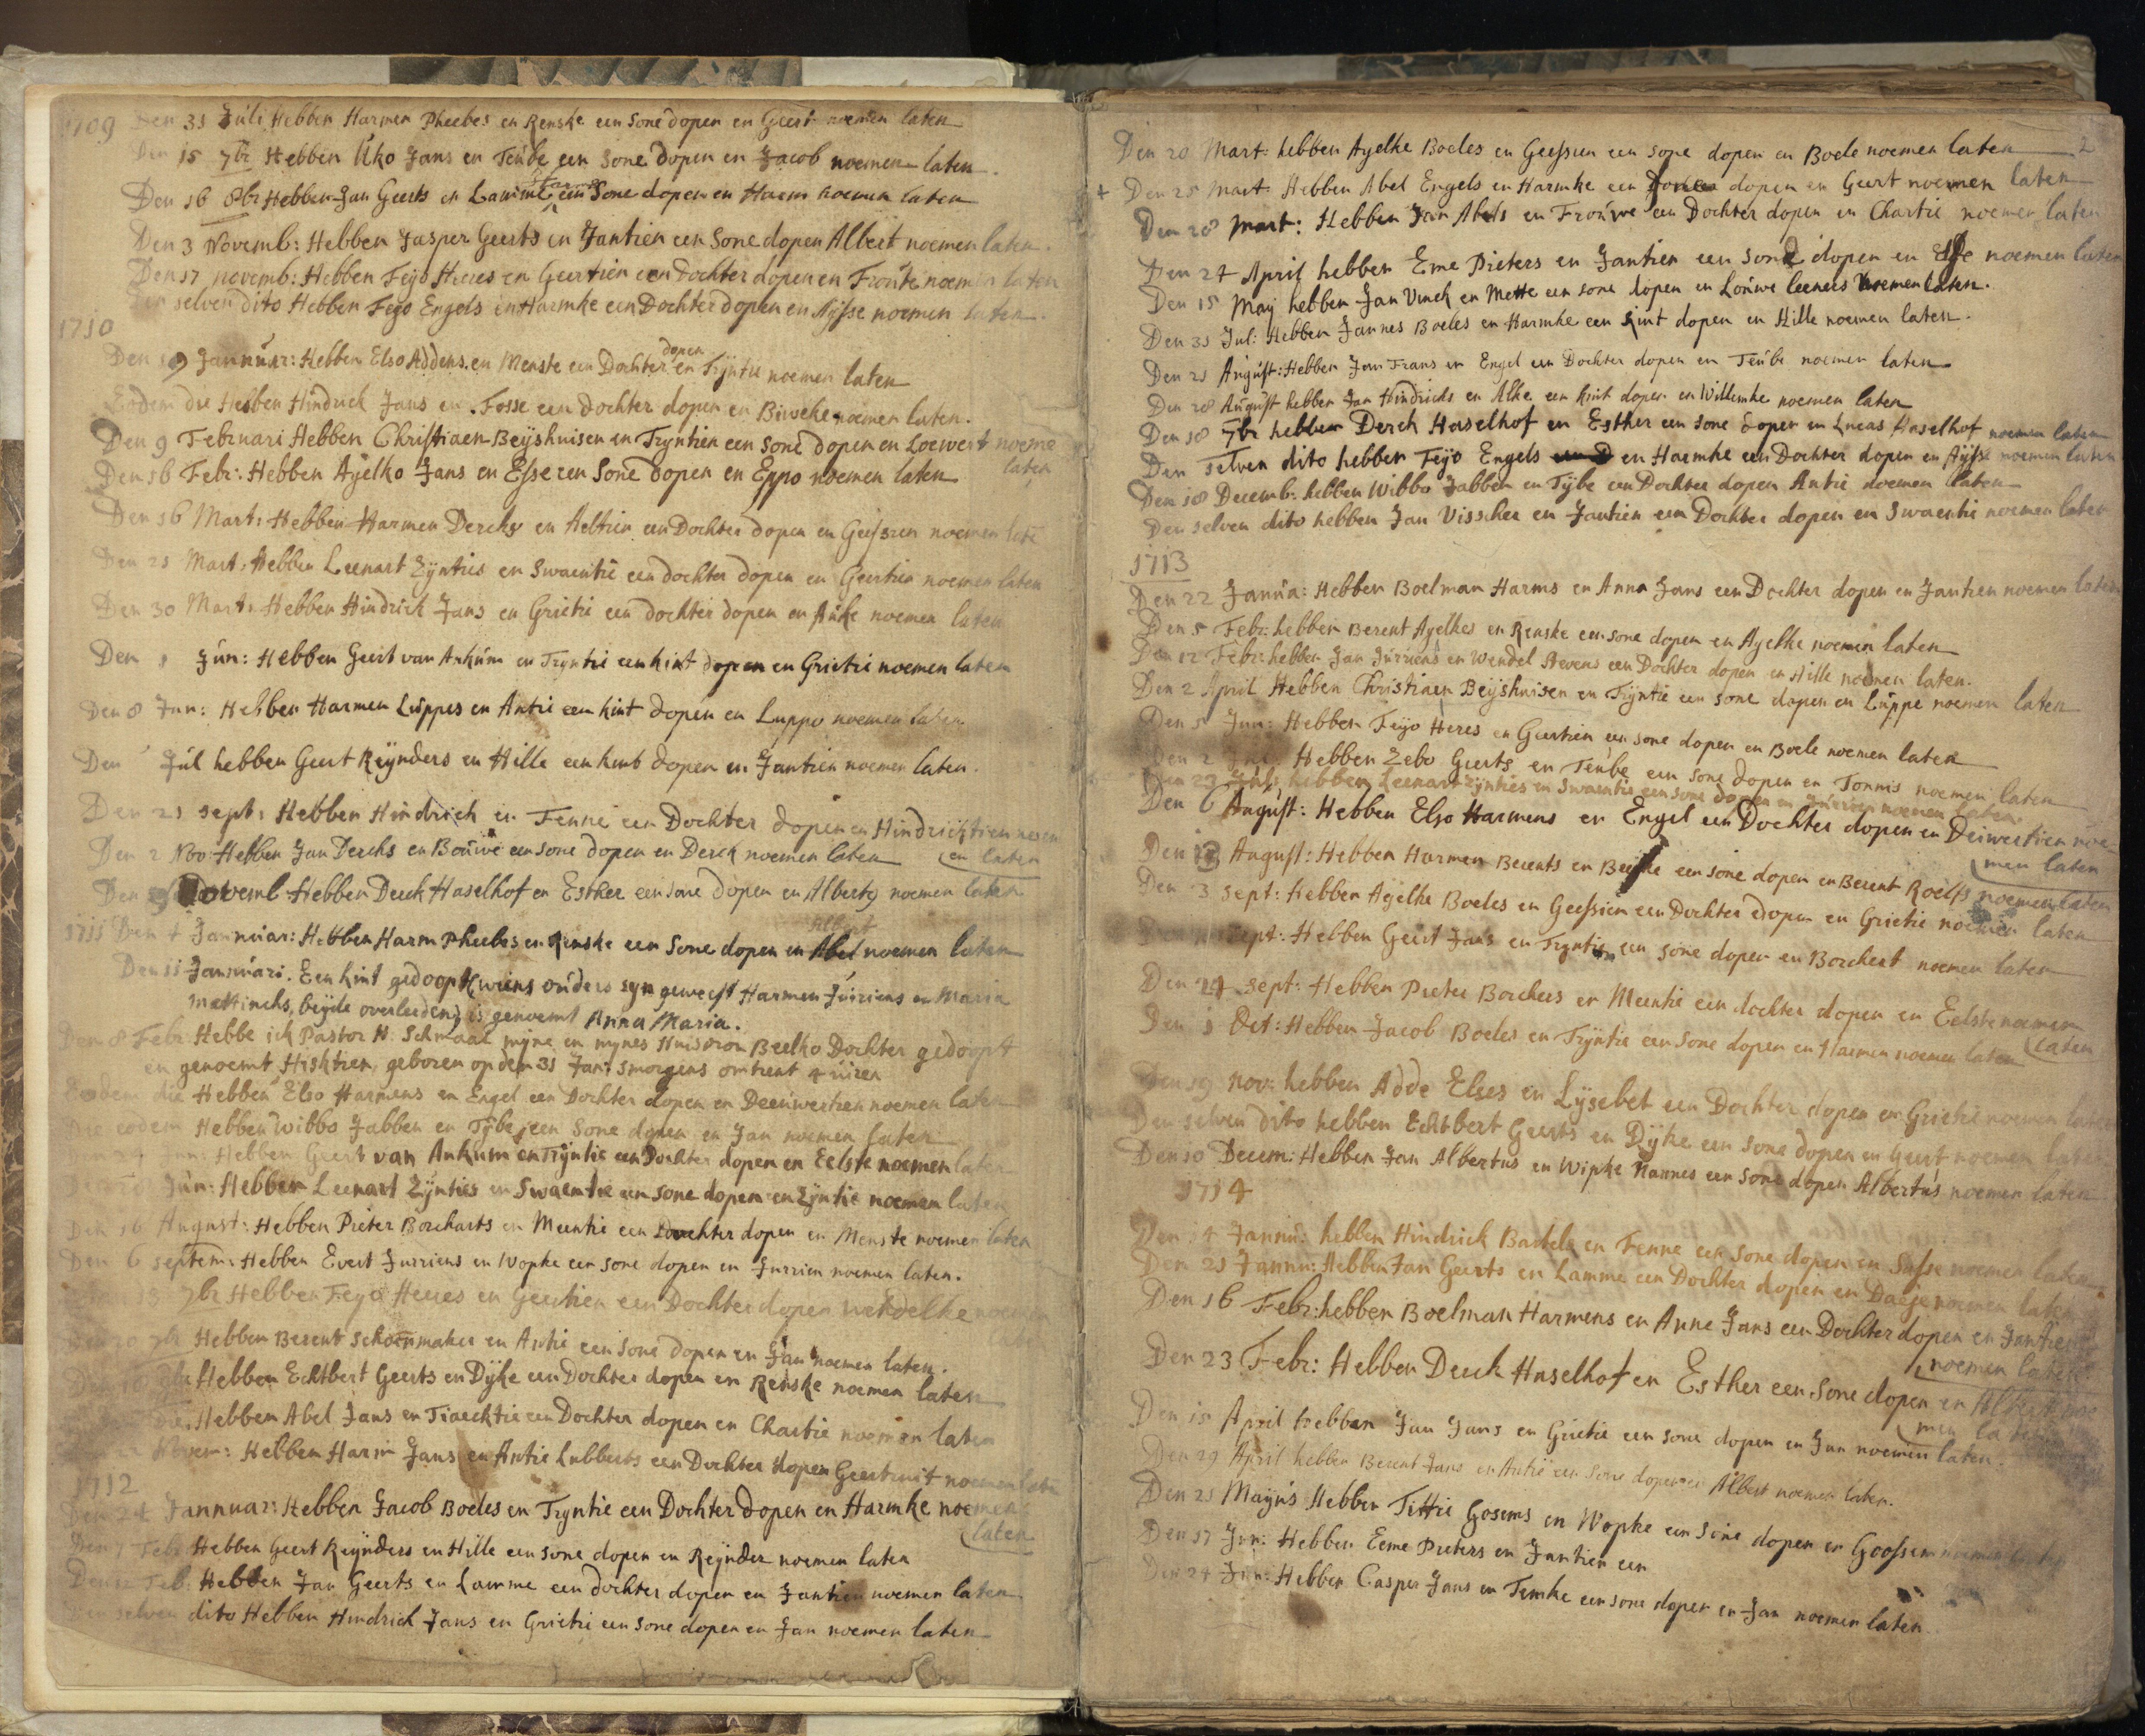 1709 Den 31 Juli Hebben Harmen Pheebes en Renske een Sone dopen en Geert noemen laten
Den 15 7br Hebben Uko Jans en Teube een Sone dopen en Jacob noemen laten.
Den 16 8br Hebben Jan Geerts en Lamme een Sone dopen en Harm noemen laten
Den 3 Novemb: Hebben Jasper Geerts en Jantien een Sone dopen Albert noemen laten.
Den 17 novemb: Hebben Feijo Heres en Geertien een Dochter dopen en Frouke noemen laten
Den selven dito Hebben Feijo Engels en Harmke een Dochter dopen en Aijsse noemen laten.
1710
Den 19 Jannuar: Hebben Elso Addens en Menste een Dochter dopen en Trijntie noemen laten
Eodem die Hebben Hindrick Jans en Fosse een dochter dopen en Biweke noemen laten.
Den 9 Februari Hebben Christiaen Beijshuisen en Trijntien een Sone dopen en Loewert noeme
laten
Den 16 Febr: Hebben Aijelko Jans en Esse een Sone dopen en Eppo noemen laten
Den 16 Mart: Hebben Harmen Dercks en Aeltien een Dochter dopen en Geessien noemen late
Den 21 Mart: Hebben Leenart Zijnties en Swaentie een dochter dopen en Geertien noemen laten
Den 30 Mart: Hebben Hindrick Jans en Grietie een dochter dopen en Auke noemen laten
Den 1 Jun: Hebben Geert van Ankum en Trijntie een kint dopen en Grietie noemen laten
Den 8 Jun: Hebben Harmen Luppes en Antie een kint dopen en Luppo noemen laten
Den Jul hebben Geert Reijnders en Hille een kint dopen en Jantien noemen laten.
Den 21 sept: Hebben Hindrick en Fenne een Dochter dopen en Hindricktien noem
en laten
Den 2 Nov: Hebben Jan Dercks en Bouwe een sone dopen en Derck noemen laten
Den Novemb Hebben Derck Haselhof en Esther een sone dopen en Alberty noemen laten
1711 Den 4 Jannuar: Hebben Harm Pheebes en Renske een Sone dopen en Abel noemen laten
Den 11 Jannuari. Een kint gedoopt wiens ouders syn geweest Harmen Juriens en Maria
Mattincks, beijde overleeden, is genoemt Anna Maria.
Den 8 Febr: Hebbe ick Pastor H. Schmaal mijne en mijnes Huisvrou Beelko Dochter gedoopt
en genoemt Hisktien, geboren op den 31 Jan: smorgens omtrent 4 uiren
Eodem die Hebben Elso Harmens en Engel een Dochter dopen en Deeuwertien noemen laten
Die eodem Hebben Wibbo Jabben en Tijbe een Sone dopen en Jan noemen laten
24 Jun: Hebben Geert van Ankum en Trijntie een Dochter dopen en Eelste noemen laten
Jun: Hebben Leenart Zijnties en Swaentie een sone dopen en Zijntie noemen laten
Den 16 August: Hebben Pieter Borcharts en Meentie een Dochter dopen en Menste noemen laten
Den 6 septem: Hebben Evert Jurriens en Wopke een sone dopen en Jurrien noemen laten.
Den 13 7br Hebben Feijo Heres en Geertien een Dochter dopen Wendelke noemen
laten
Den 20 7br Hebben Berent Schoenmaker en Antie een sone dopen en Jan noemen laten.
Hebben Echtbert Geerts en Dijke een Dochter dopen en Renske noemen laten
die Hebben Abel Jans en Tiaecktie een Dochter dopen en Chartie noemen laten
Novem: Hebben Harm Jans en Antie Lubberts een Dochter dopen Geertruit noemen laten
1712
Den 24 Jannuar: Hebben Jacob Boeles en Trijntie een Dochter dopen en Harmke noemen
laten
Den 7 Feb: Hebben Geert Reijnders en Hille een sone dopen en Reijnder noemen laten
Den 12 Feb: Hebben Jan Geerts en Lamme een dochter dopen en Jantien noemen laten
Den selven dito Hebben Hindrick Jans en Grietie een sone dopen en Jan noemen laten
2
Den 20 Mart: hebben Ayelke Boeles en Geessien een sone dopen en Boele noemen laten
+ Den 25 Mart: Hebben Abel Engels en Harmke een dopen en Geert noemen laten
Den 28 Mart: Hebben Jan Abels en Frouwe een Dochter dopen en Chartie noemen laten
Den 24 April hebben Eme Pieters en Jantien een sone dopen en noemen laten
Den 15 May hebben Jan Vinck en Mette een sone dopen en Louwe leenerts noemen laten.
Den 31 Jul: Hebben Jannes Boeles en Harmke een kint dopen en Hille noemen laten.
Den 21 August: Hebben Jan Frans en Engel een Dochter dopen en Teube noemen laten
Den 28 August hebben Jan Hindricks en Alke een kint dopen en Willemke noemen laten
Den 18 7br hebben Derck Haselhof en Esther een sone dopen en Lucas Haselhof noemen laten
Den selven dito hebben Feijo Engels en Harmke een Dochter dopen en Aijsse noemen laten
Den 18 Decemb: hebben Wibbo Jabben en Tijbe een Dochter dopen Antie noemen laten
Den selven dito hebben Jan Visscher en Jantien een Dochter dopen en Swaentie noemen laten
1713
Den 22 Janua: Hebben Boelman Harms en Anna Jans een Dochter dopen en Jantien noemen laten
Den 5 Febr: hebben Berent Ayelkes en Renske een sone dopen en Ayelke noemen laten
Den 12 Febr: hebben Jan Jurriens en Wendel Stevens een Dochter dopen en Hille noemen laten.
Den 2 April Hebben Christiaen Beijshuisen en Trijntie een sone dopen en Luppe noemen laten
Den 5 Jun: Hebben Feijo Heres en Geertien een sone dopen en Boele noemen laten
Den 2 Hebben Zebo Geerts en Teube een sone dopen en Tonnis noemen laten
Den 23 hebben Leenart Zijnties en Swaentie een sone dopen en Jurrien noemen laten.
Den 6 August: Hebben Elso Harmens en Engel een Dochter dopen en Deiwertien noe-
men laten
Den 13 August: Hebben Harmen Berents en een sone dopen en Berent Roelfs noemen laten
Den 3 sept: Hebben Ayelke Boeles en Geessien een Dochter dopen en Grietie noemen laten
Den sept: Hebben Geert Jans en Trijntie een sone dopen en Borchert noemen laten
Den 24 sept: Hebben Pieter Borchers en Meentie een dochter dopen en Eelste noemen
laten
Den 8 Oct: Hebben Jacob Boeles en Trijntie een Sone dopen en Harmen noemen laten
Den 19 Nov: hebben Adde Elses en Lijsebet een Dochter dopen en Grietie noemen laten
Den selven dito hebben Echtbert Geerts en Dijke een Sone dopen en Geert noemen laten
Den 10 Decem: Hebben Jan Albertus en Wipke Nannes een Sone dopen Albertus noemen laten
1714
Den 14 Jannu: hebben Hindrick Bartels en Fenne een sone dopen en noemen laten
Den 21 Jannu: Hebben Jan Geerts en Lamme een Dochter dopen en noemen laten
Den 16 Febr: hebben Boelman Harmens en Anne Jans een Dochter dopen en Jantien
noemen laten
Den 23 Febr: Hebben Derck Haselhof en Esther een Sone dopen en Albert noe
men laten
Den 15 April Hebben Jan Jans en Grietie een sone dopen en Jan noemen laten.
Den 29 April hebben Berent Jans en Antie een sone dopen en Albert noemen laten.
Den 21 Mayus Hebben Tittie Gosems en Wopke een sone dopen en Goossen noemen laten
Den 17 Jun: Hebben Eeme Pieters en Jantien een
Den 24 Jun: Hebben Casper Jans en Temke een sone dopen en Jan noemen laten